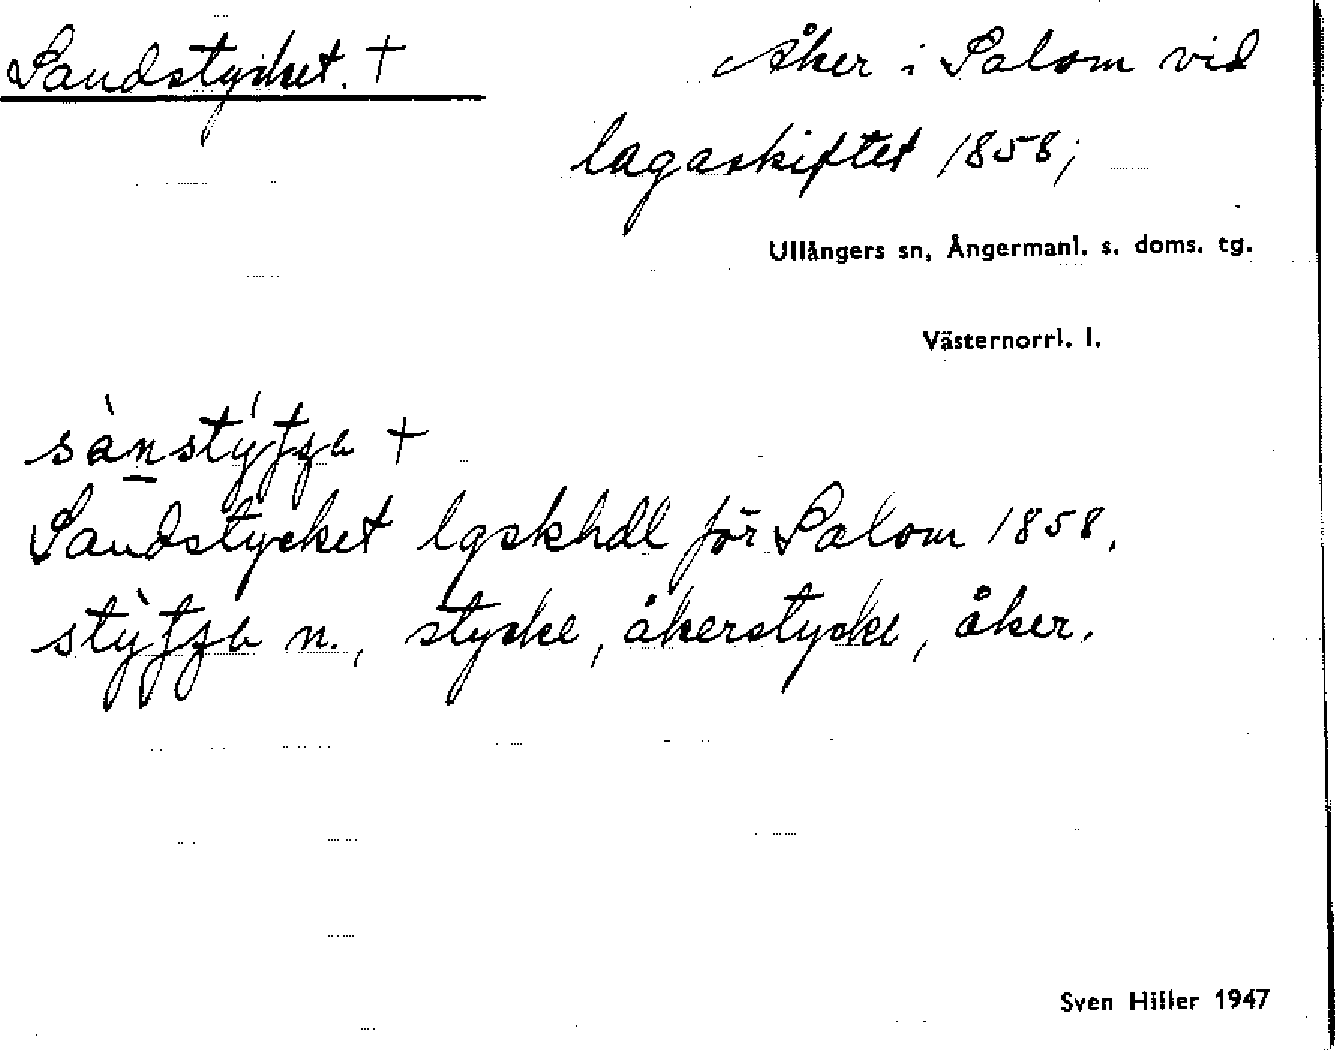 Sandstycket. † Åker i Salom vid
lagaskiftet 1858;
Ullångers sn, Ångermanl. s. doms. tg.
Västernorrl. l.
†
Sandstycket lgskhdl för Salom 1858.
n., stycke, åkerstycke, åker.
Sven Hiller 1947